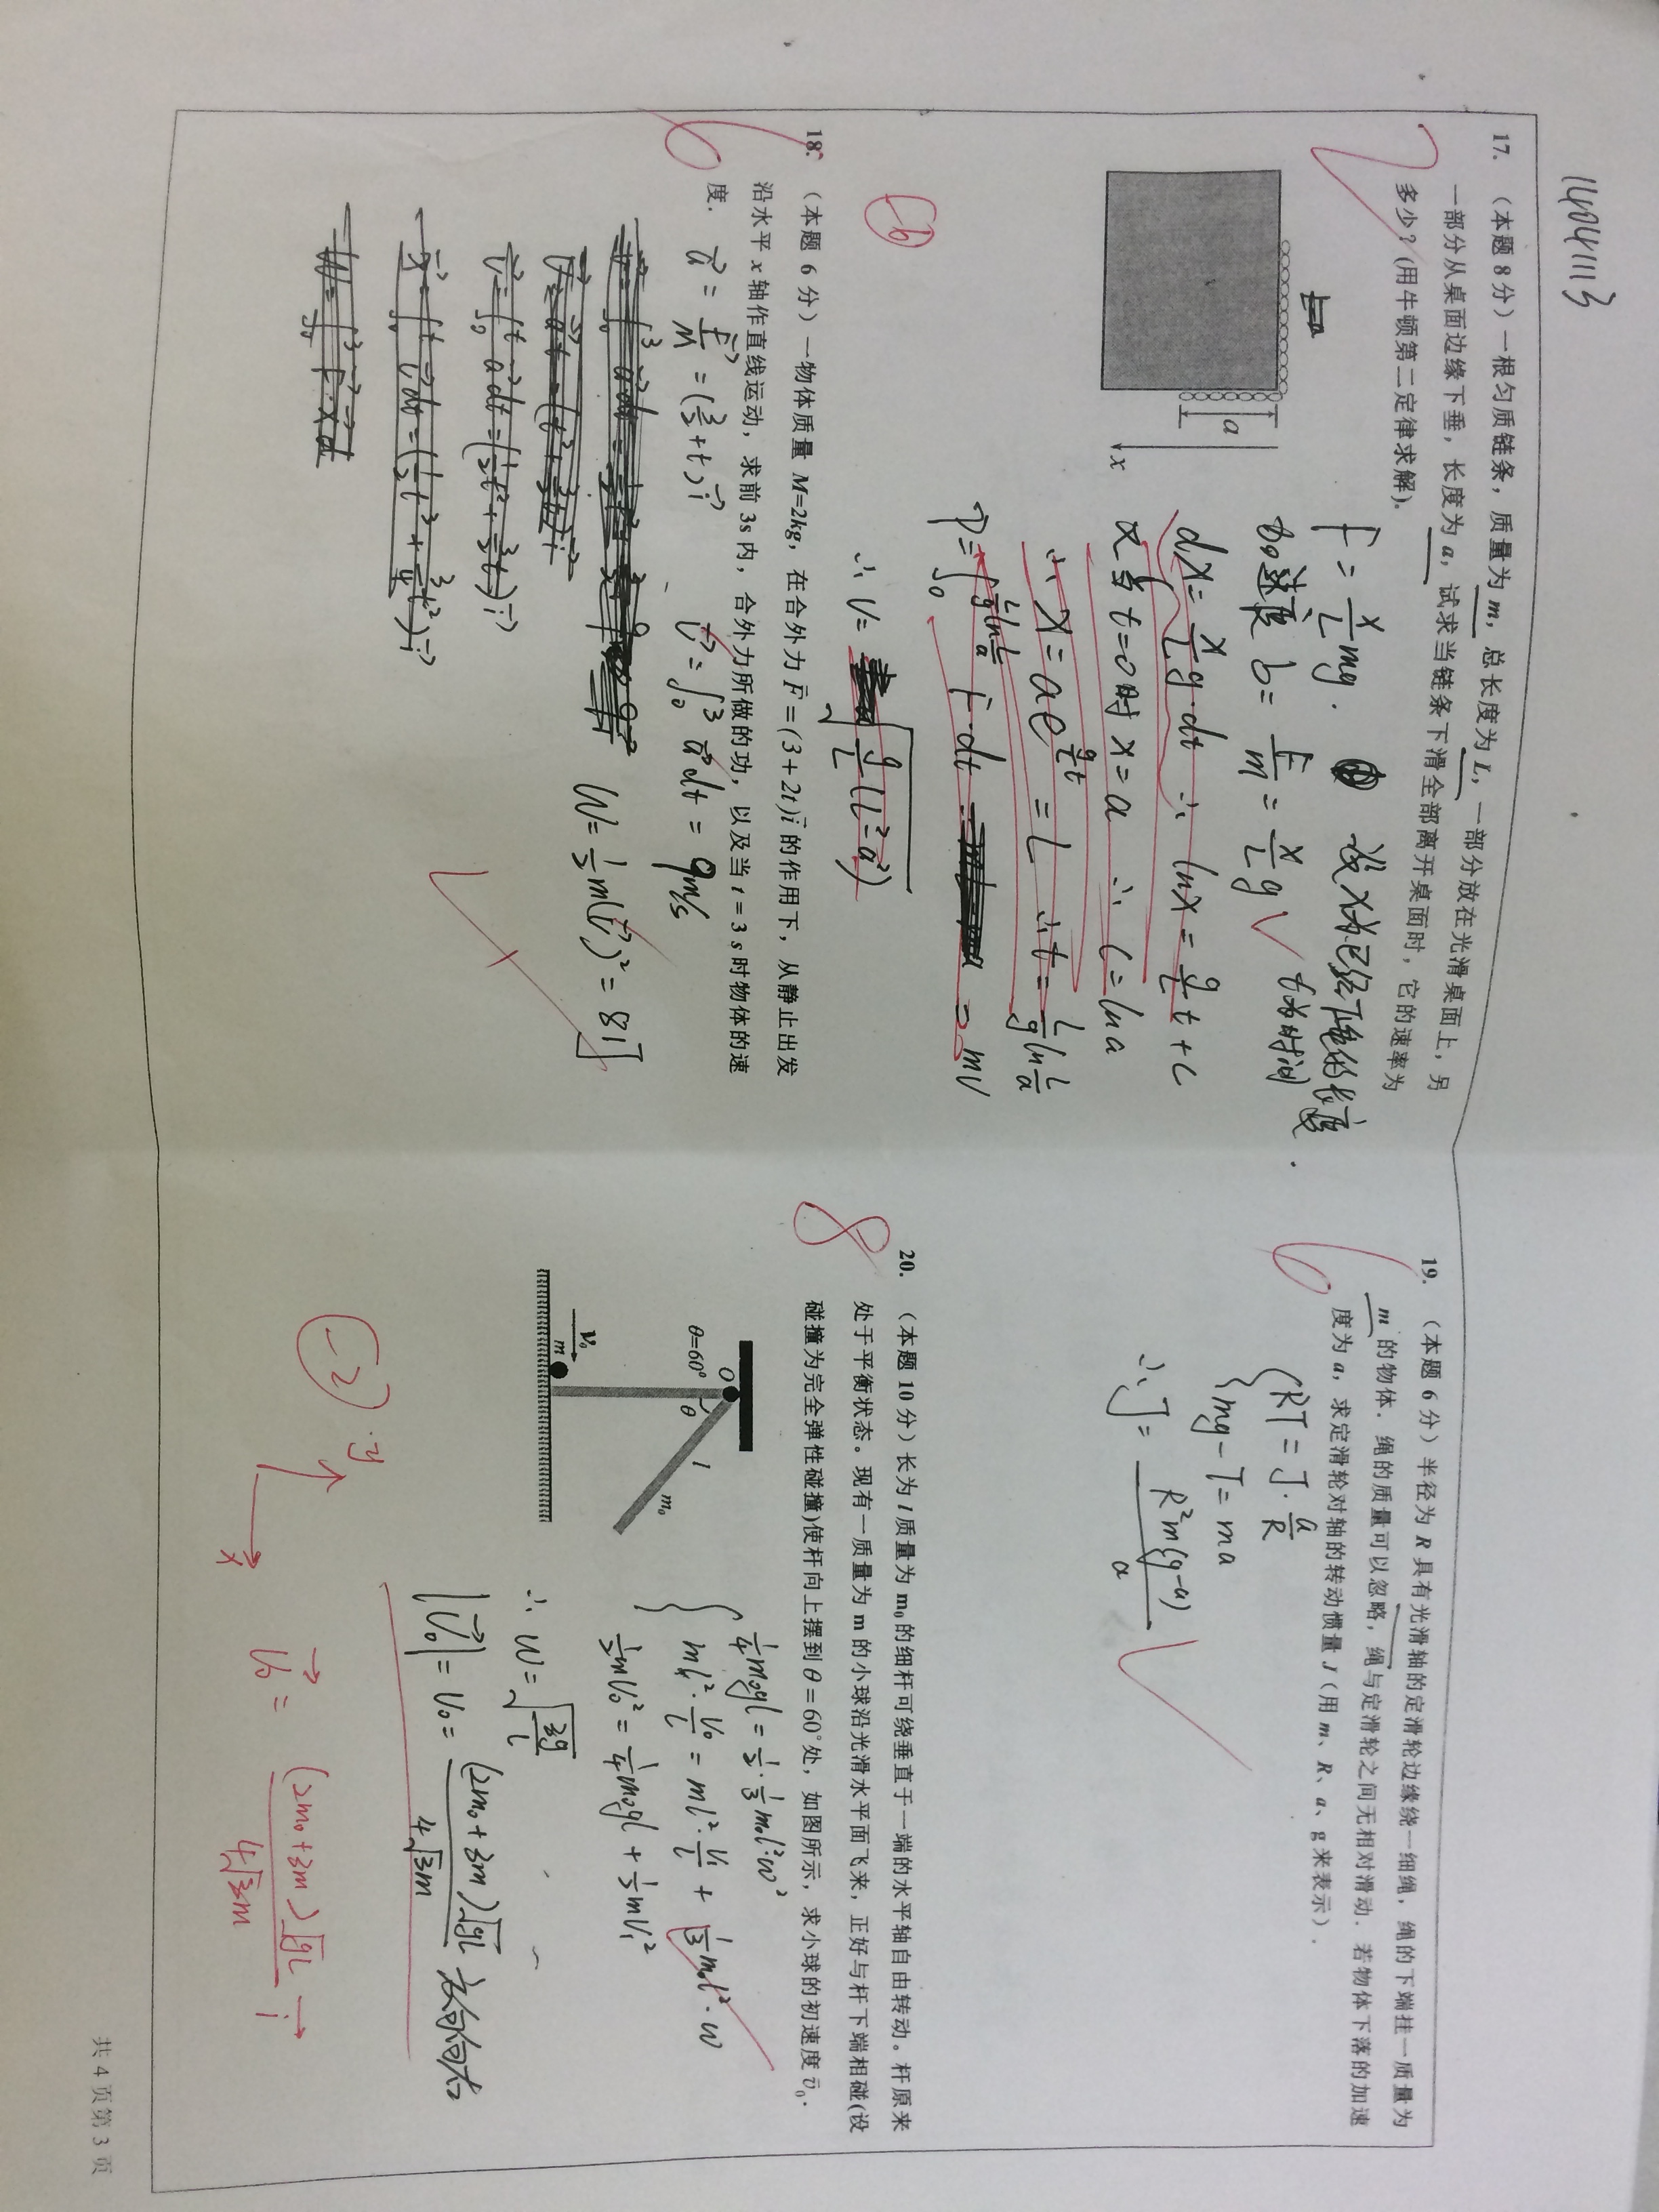 14041113
17. （本题 8 分）一根匀质链条，质量为 m，总长度为 L，一部分放在光滑桌面上，另
一部分从桌面边缘下垂，长度为 a，试求当链条下滑全部离开桌面时，它的速率为
多少？(用牛顿第二定律求解).
2
a
x
F = x/L mg. 设x为已经下垂的长度.
加速度 b = F/m = x/L g t为时间
dx = x/L g·dt ∴ lnx = g/L t + C
x当t=0时 x=a ∴ C=lna
∴ x = a e^(g/L t) = L ∴ t = L/g ln L/a
P = ∫₀^(L/g ln L/a) F·dt = mV
∴ V = √(g/L (L²-a²))
-6
18. （本题 6 分）一物体质量 M=2kg，在合外力 F⃗=(3+2t)i⃗ 的作用下，从静止出发
沿水平 x 轴作直线运动，求前 3s 内，合外力所做的功，以及当 t=3 s 时物体的速
度.
6
a⃗ = F⃗/M = (3/2+t)i⃗ V⃗ = ∫₀³ a⃗dt = 9m/s
W = 1/2 m(V⃗)² = 81J
V⃗ = ∫₀^t a⃗dt = (1/2 t² + 3/2 t)i⃗
19. （本题 6 分）半径为 R 具有光滑轴的定滑轮边缘绕一细绳，绳的下端挂一质量为
m 的物体．绳的质量可以忽略，绳与定滑轮之间无相对滑动．若物体下落的加速
度为 a，求定滑轮对轴的转动惯量 J（用 m、R、a、g 来表示）.
6
RT = J·a/R
mg-T = ma
∴ J = R²m(g-a)/a
20. （本题 10 分）长为 l 质量为 m₀ 的细杆可绕垂直于一端的水平轴自由转动。杆原来
处于平衡状态。现有一质量为 m 的小球沿光滑水平面飞来，正好与杆下端相碰(设
碰撞为完全弹性碰撞)使杆向上摆到 θ=60°处，如图所示，求小球的初速度 v⃗₀.
8
O
θ=60°
θ
l
m₀
v₀
m
1/4 m₀gl = 1/2·1/3 m₀l²ω²
ml²·V₀/l = ml²·V₁/l + 1/3 m₀l²·ω
1/2 mV₀² = 1/4 m₀gl + 1/2 mV₁²
∴ ω = √(3g/2l)
|V⃗₀| = V₀ = (2m₀+3m)√gl / 4√3m 方向向右
-2
y
x
V⃗₀ = (2m₀+3m)√gl / 4√3m i⃗
共 4 页第 3 页